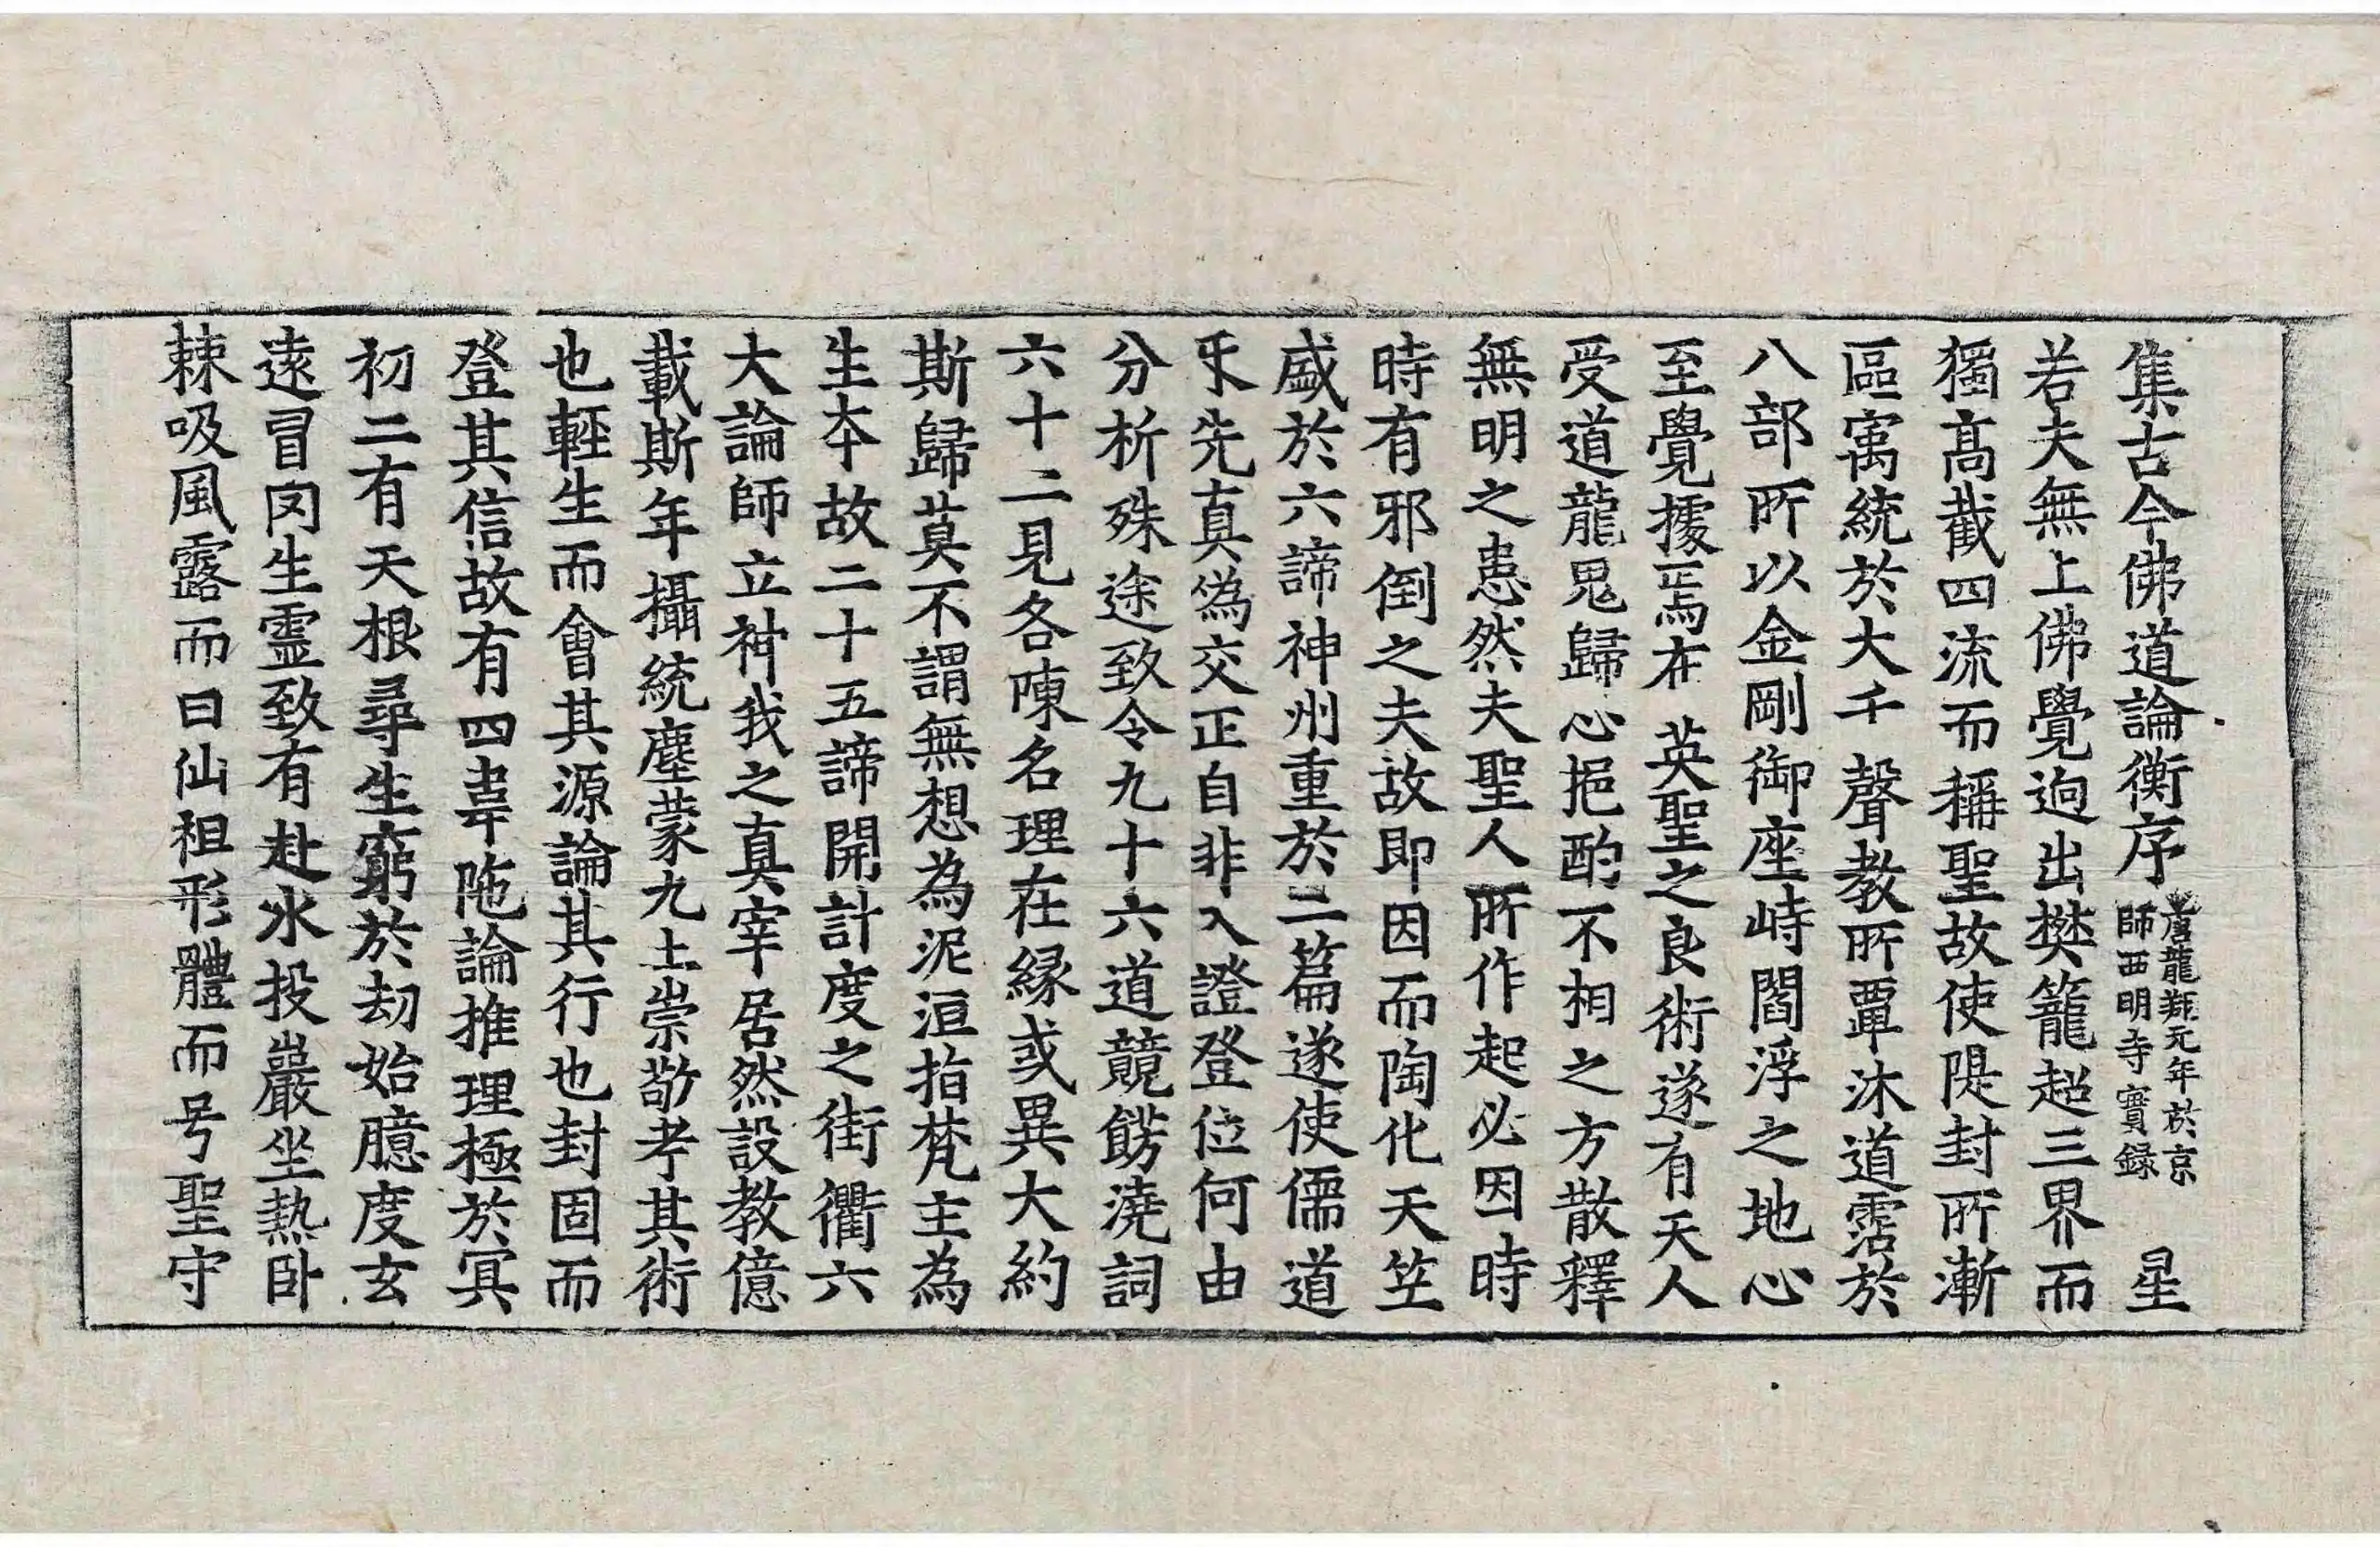 集古今佛道論衡序 唐龍朔元年於京師西明寺實錄 星
若夫無上佛覺逈出樊籠超三界而
獨髙截四流而稱聖故使隄封所漸
區㝢統於大千聲教所覃沐道霑於
八部所以金剛御座峙閻浮之地心
至覺據焉在英聖之良術遂有天人
受道龍鬼歸心挹酌不相之方散釋
無明之患然夫聖人所作起必因時
時有邪倒之夫故即因而陶化天竺
盛於六諦神州重於二篇遂使儒道
乐先真偽交正自非入證登位何由
分析殊途致令九十六道競餝澆詞
六十二見各陳名理在縁或異大約
斯歸莫不謂無想為泥洹指梵主為
生夲故二十五諦開計度之街衢六
大論師立神我之真宰居然設教億
載斯年攝統塵蒙九土崇敬考其術
也輕生而會其源論其行也封固而
登其信故有四韋陁論推理極於冥
初二有天根尋生窮於劫始臆度玄
遠冒罔生霊致有赴水投巖坐熱卧
棘吸風露而曰仙祖形體而号聖守